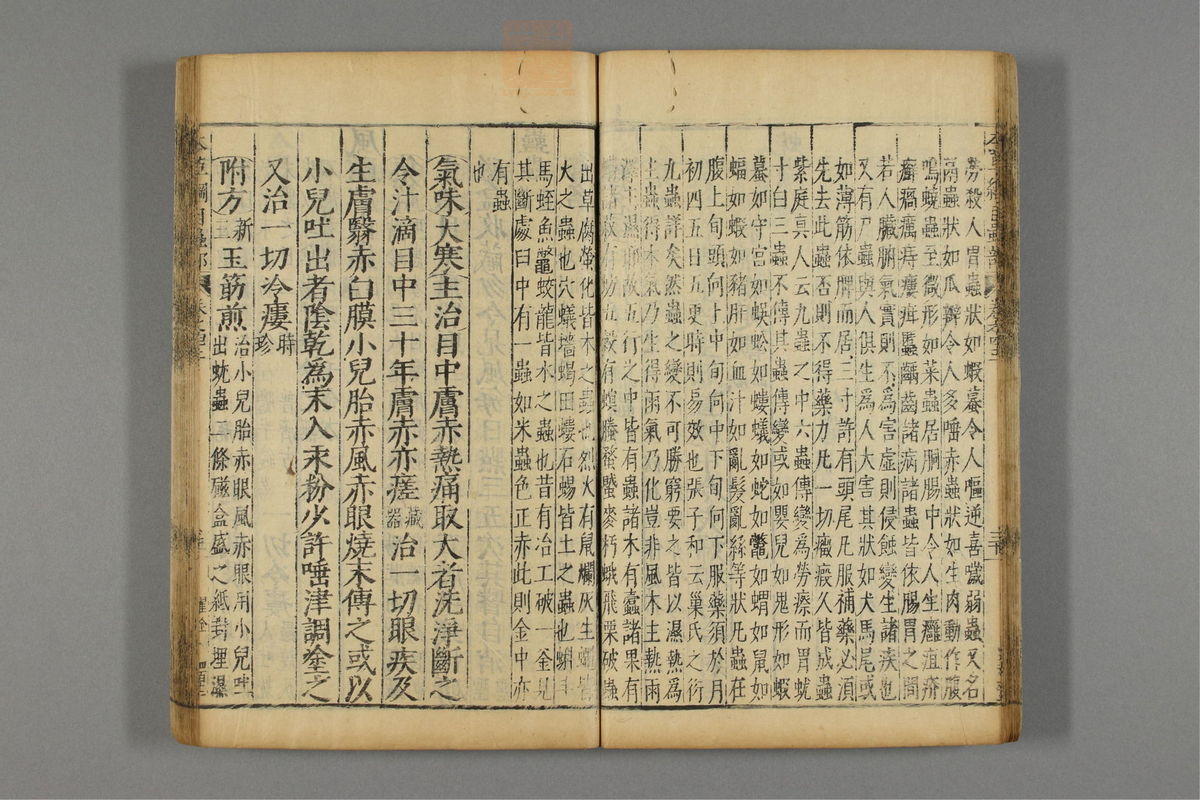 勞殺人胃蟲狀如蝦蟇令人嘔逆喜噦弱蟲又名
鬲蟲狀如瓜瓣令人多唾赤蟲狀如生肉動作腹
鳴蟯蟲至微形如菜蟲居胴腸中令人生癰疽疥
癬瘑癘痔瘻疳䘌齲齒諸病諸蟲皆依腸胃之間
若人臟腑氣實則不為害虛則侵蝕變生諸疾也
又有尸蟲與人俱生為人大害其狀如犬馬尾或
如薄筋依脾而居三寸許有頭尾凡服補藥必須
先去此蟲否則不得藥力凡一切癥瘕久皆成蟲
紫庭真人云九蟲之中六蟲傳變為勞瘵而胃蚘
寸白三蟲不傳其蟲傳變或如嬰兒如鬼形如蝦
蟇如守宮如蜈蚣如螻蟻如蛇如鱉如蝟如鼠如
蝠如蝦如豬肝如血汁如亂髮亂絲等狀凡蟲在
腹上旬頭向上中旬向中下旬向下服藥須於月
初四五日五更時則易效也張子和云巢氏之衍
九蟲詳矣然蟲之變不可勝窮要之皆以濕熱為
主蟲得木氣乃生得雨氣乃化豈非風木主熱雨
澤主濕耶故五行之中皆有蟲諸木有蠹諸果有
故有蚄五穀有螟螣蝥蟊麥朽蛾飛栗破蟲
出草腐螢化皆木之蟲也烈火有鼠爛灰生蠅皆
火之蟲也穴蟻墻蝎田螻石蜴皆土之蟲也蝌斗
馬蛭魚鱉蛟龍皆水之蟲也昔有冶工破一釜見
其斷處臼中有一蟲如米蟲色正赤此則金中亦
有蟲
也
氣味大寒主治目中膚赤熱痛取大者洗淨斷之
令汁滴目中三十年膚赤亦瘥藏器治一切眼疾及
生膚翳赤白膜小兒胎赤風赤眼燒末傅之或以
小兒吐出者陰乾為末入汞粉少許唾津調塗之
又治一切冷瘻時珍
附方新 玉筯煎治小兒胎赤眼風赤眼用小兒吐
出蚘蟲二條磁盒盛之紙封埋濕